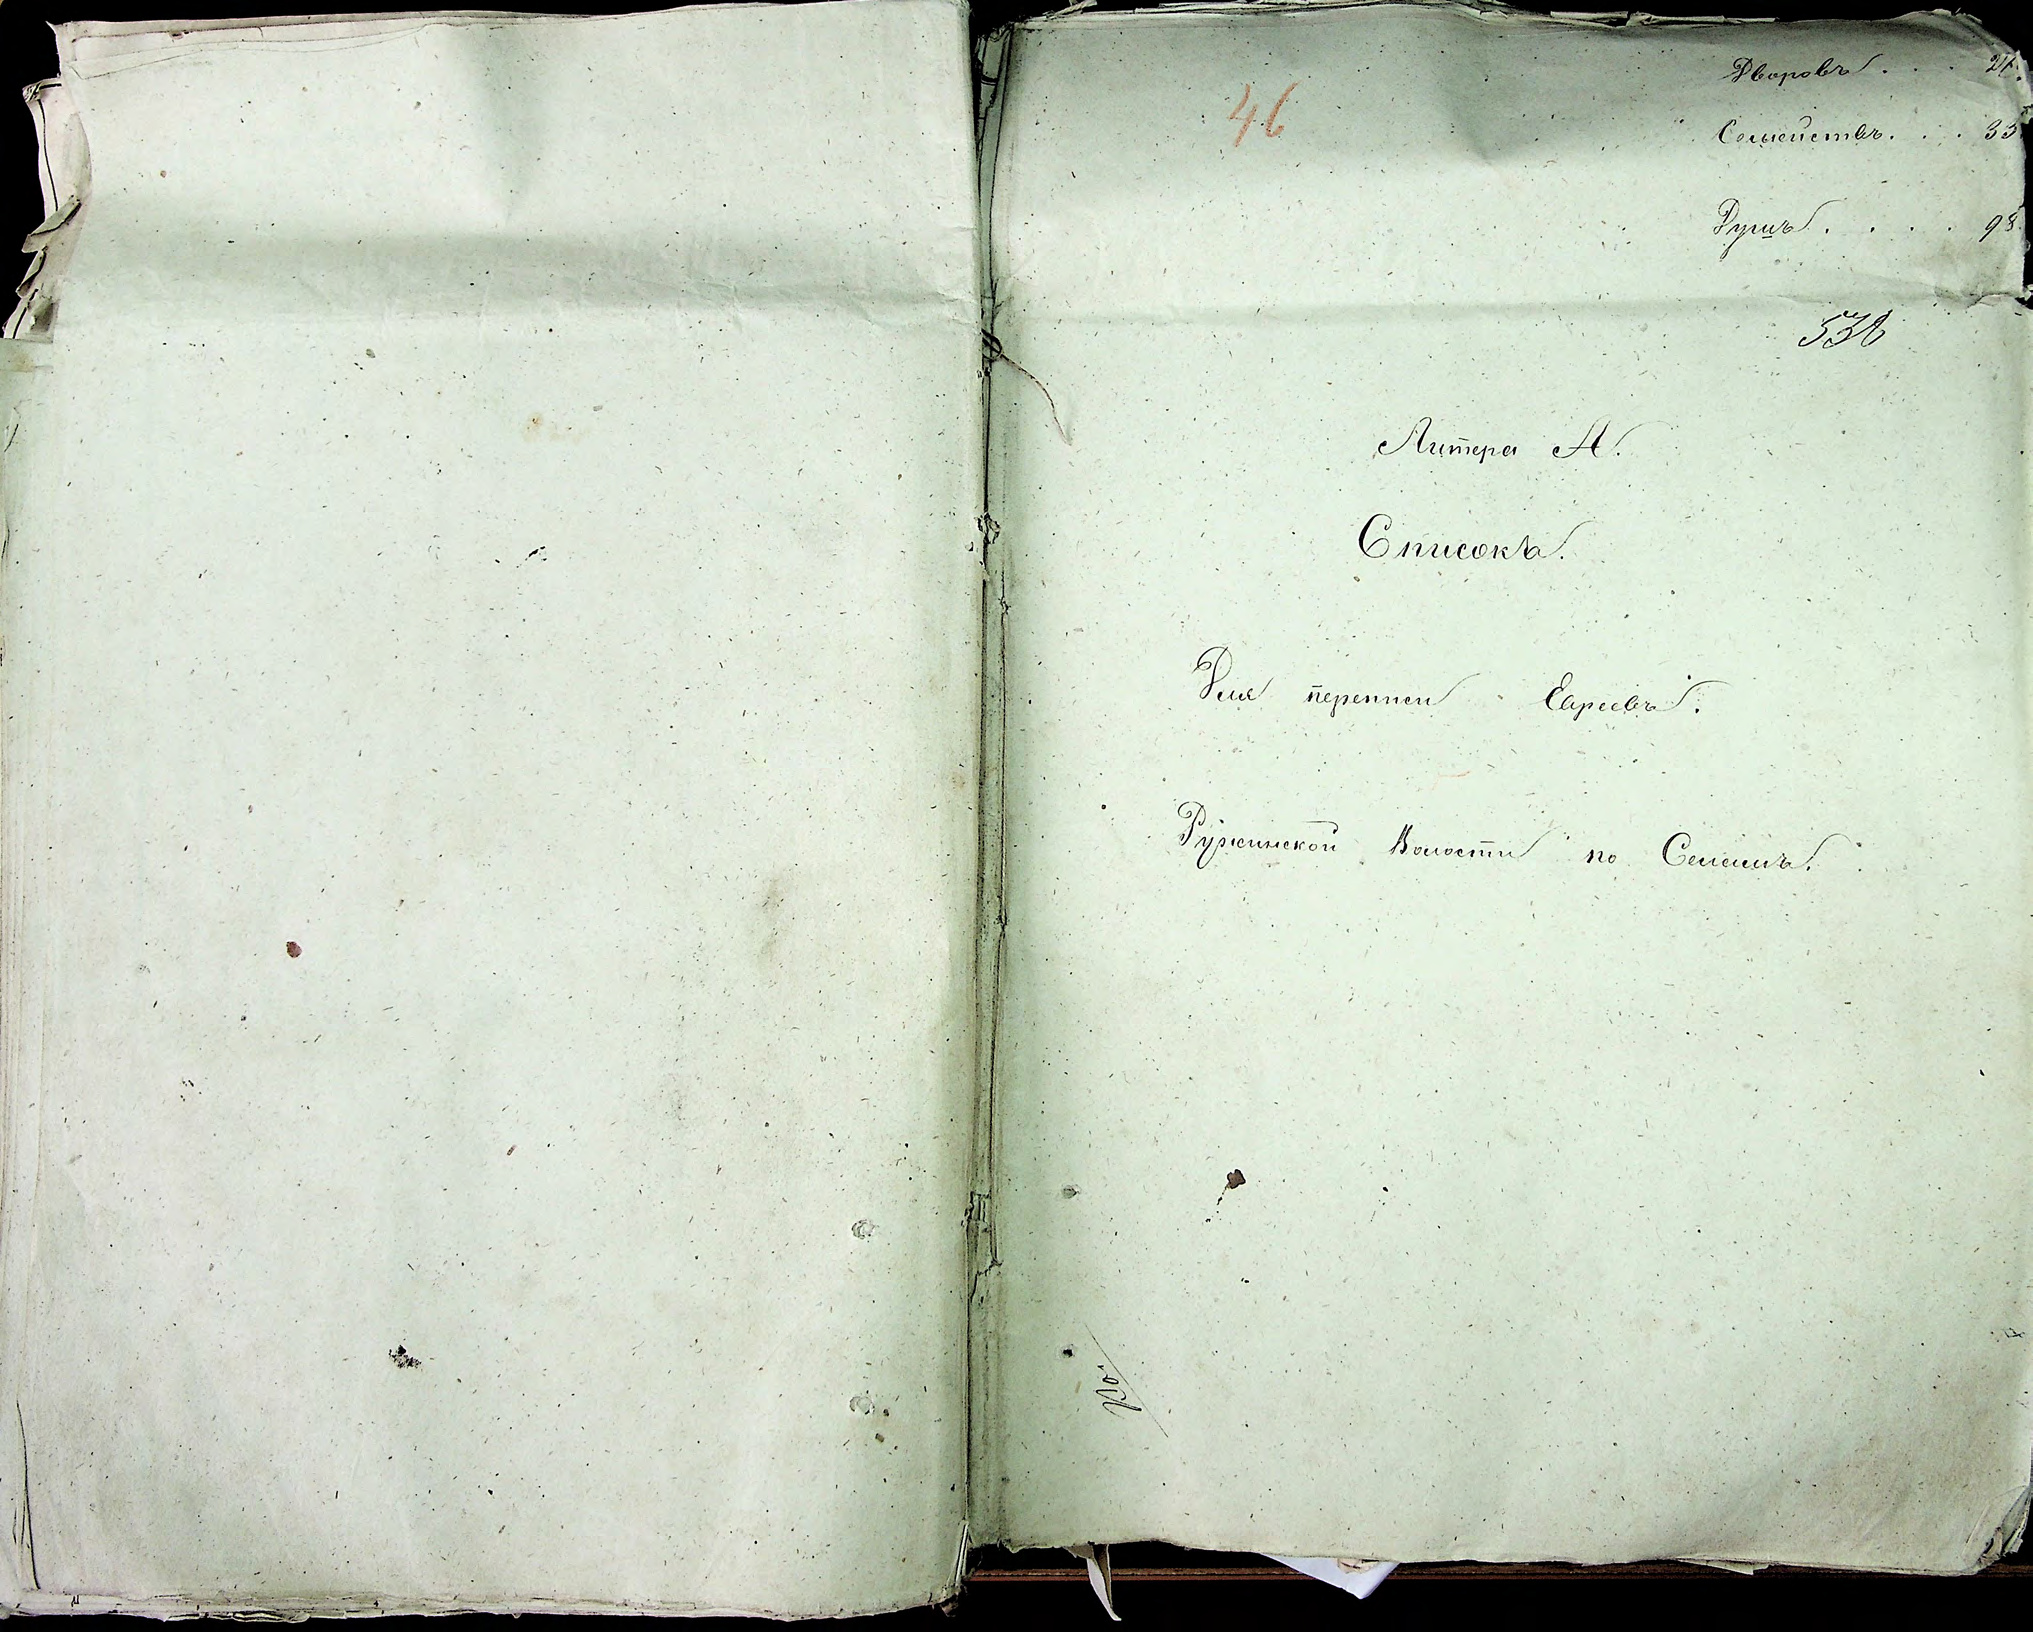 46
Дворовъ . . . 24.
Семействъ. . . 33
Душъ . . . . 98.
538
Литера А.
Списокъ.
Для переписи Евреевъ.
Ружинской Волости по Селамъ.